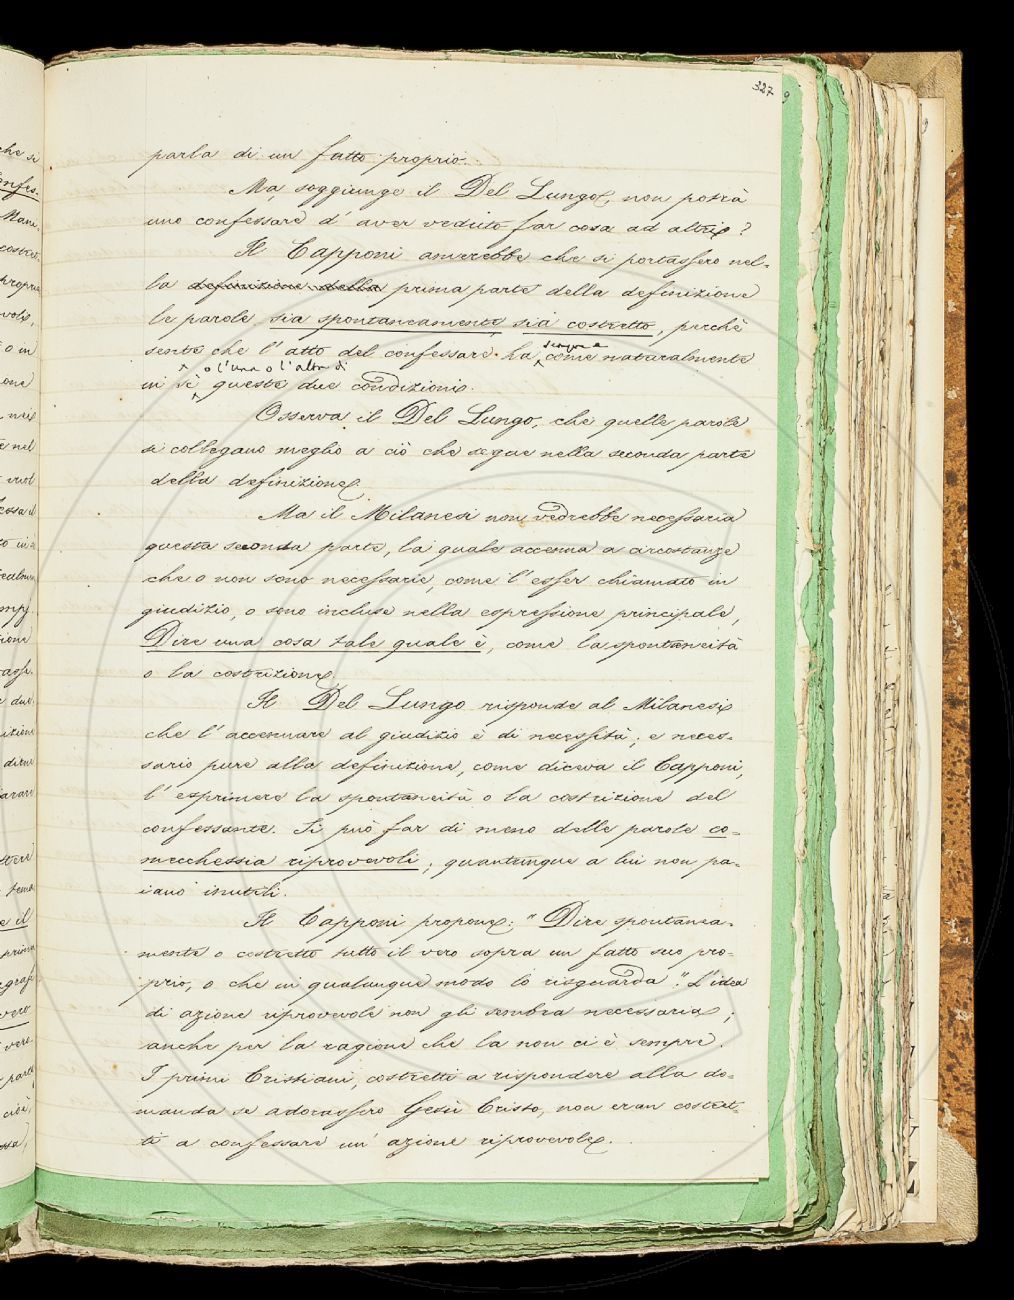 327 9
parla di un fatto proprio.
Ma, soggiunge il Del Lungo, non potrà
uno confessare d'aver veduto far cosa ad altri?
Il Capponi amerebbe che si portassero nel-
la definizione della prima parte della definizione
le parole sia spontaneamente, sia costretto, perchè
sente che l'atto del confessare ha sempre come naturalmente
in sè o l'una o l'altra di queste due condizioni.
Osserva il Del Lungo, che quelle parole
si collegano meglio a ciò che segue nella seconda parte
della definizione.
Ma il Milanesi non vedrebbe necessaria
questa seconda parte, la quale accenna a circostanze
che o non sono necessarie, come l'esser chiamato in
giudizio, o sono incluse nella espressione principale,
Dire una cosa tale quale è, come la spontaneità
o la costrizione.
Il Del Lungo risponde al Milanesi
che l'accennare al giudizio è di necessità; e neces-
sario pure alla definizione, come diceva il Capponi,
l'esprimere la spontaneità o la costrizione del
confessante. Si può far di meno delle parole co-
mecchessia riprovevoli; quantunque a lui non pa-
iano inutili.
Il Capponi propone: "Dire spontanea-
mente o costretto tutto il vero sopra un fatto suo pro-
prio, o che in qualunque modo lo risguarda". L'idea
di azione riprovevole non gli sembra necessaria;
anche per la ragione che la non ci è sempre.
I primi Cristiani, costretti a rispondere alla do-
manda se adorassero Gesù Cristo, non eran costret-
ti a confessare un'azione riprovevole.